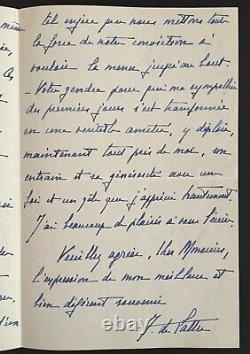 tel enjeu que nous mettons tout
la force de notre conviction à
vouloir la mener jusqu'au bout.
- Votre gendre pour qui ma sympathie
des premiers jours s'est transformée
en une véritable amitié, y déploie,
maintenant tout près de moi, un
entrain et se générosité avec un
et un que j'apprécie hautement.
J'ai beaucoup de plaisir à vous l'écrire.
Veuillez agréer, cher Monsieur,
l'expression de mon meilleur et
bien déférent souvenir
J. de